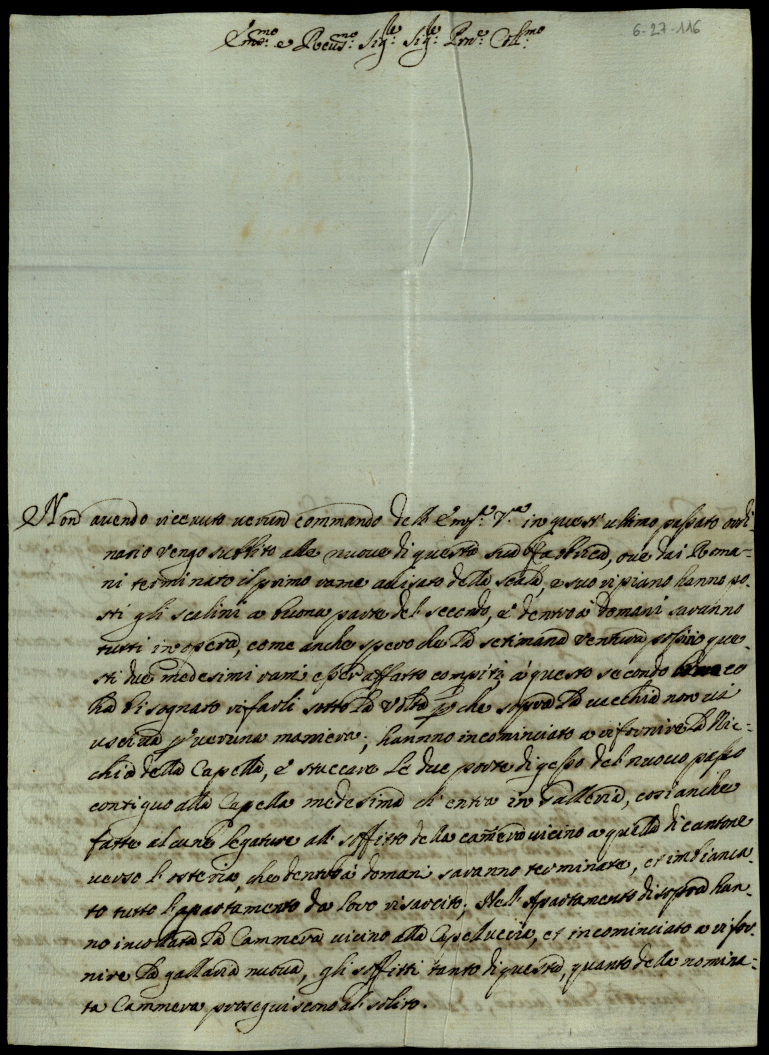 6-27-116
Em.mo e Reu.mo Sig.re Sig.re Pron.e Coll.mo
Non auendo riceuuto uerun commando dell' Em.za V.ra in quest' ultimo passato ordi
nario vengo subbito alle nuoue di questa sua Fabbrica, oue dai Roma-
ni terminato il primo rame della Scala, e suo ripiano hanno po-
sti gli scalini a buona parte del secondo, e dentro a domani saranno
tutti in opera, come anche spero che la settimana ventura que-
sti due medesimi rami esser affatto compiti, a questo secondo
ha bisognato rifarli sotto la volta p che sopra la uecchia non ui
usciua p ueruna maniera; hannno incominciato a rifornire la Nic-
chia della Capella, e stuccare le due porte di gesso del nuouo passo
contiguo alla Capella medesima ch' entra in Galleria, cosi anche
fatte alcune legature all' soffitto della camera uicino a quella di cantone
uerso l' osteria, che dentro a domani saranno terminate, et imbianca-
to tutto l' apartamento da loro risarcito; Nell' Apartamento di sopra han-
no la Cammera uicino alla Capelluccia, et incominciato a rifor-
nire la gallaria nuoua, gli soffitti tanto di questa, quanto della nomina-
ta Cammera proseguiscono al solito.